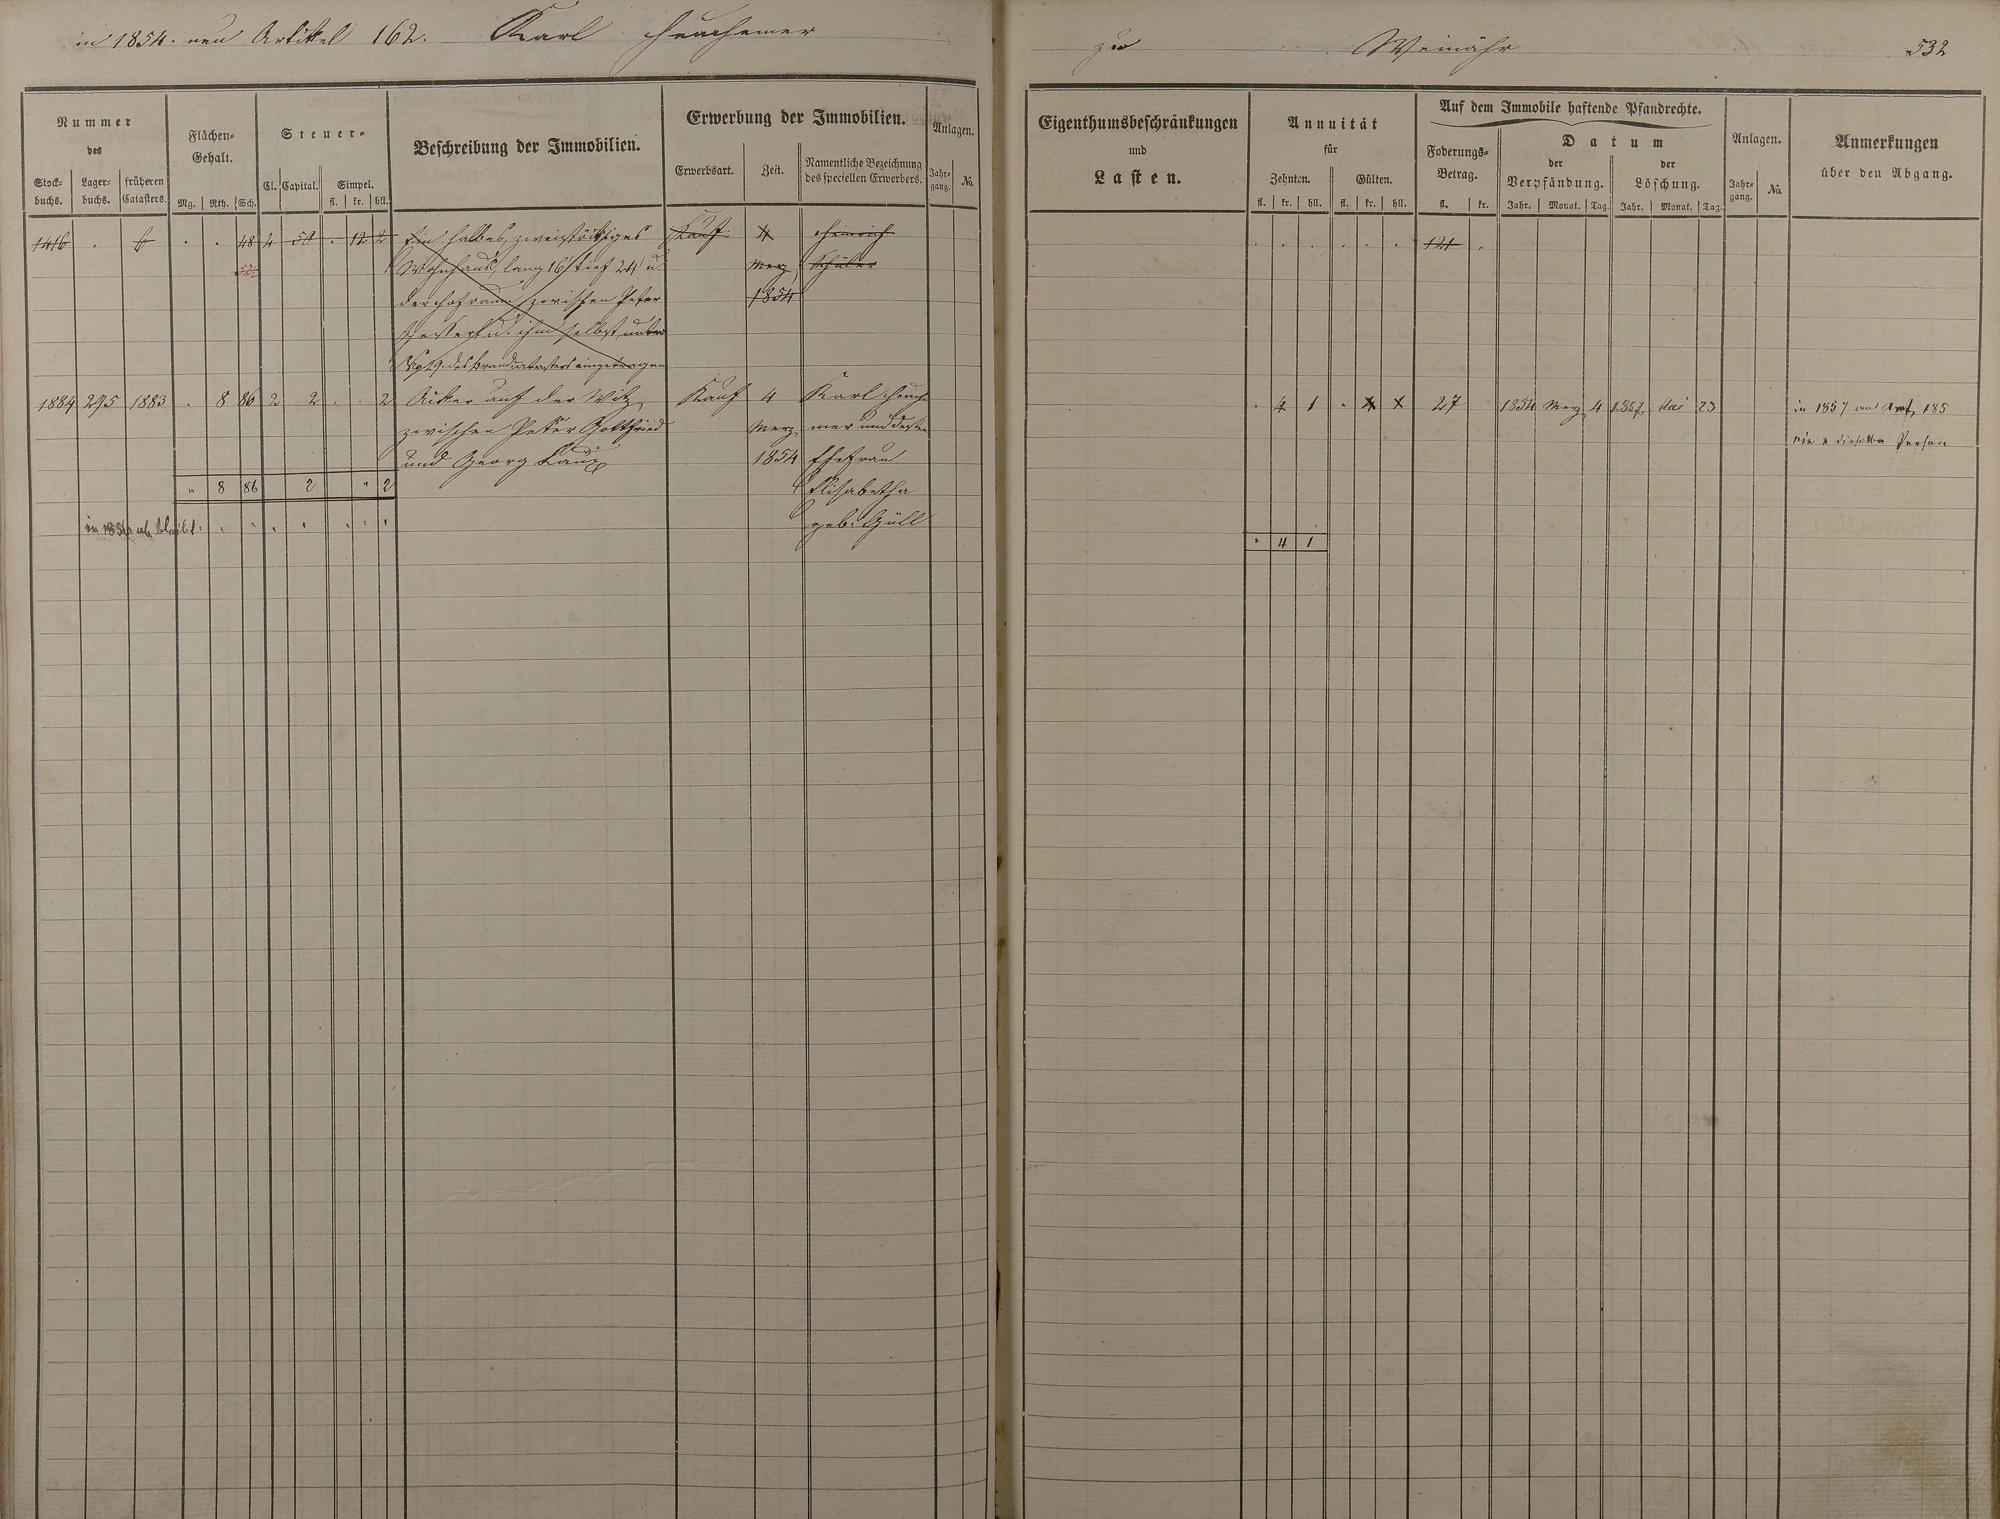 in 1854. neu Artikel 162. Karl Heuchemer
zu Weinähr 532
Nummer
des
Stock-
buchs.
Lager-
buchs.
früheren
Catasters.
Flächen-
Gehalt.
Mg. Rth. Sch.
Steuer-
Cl. Capital. Simpel.
fl. kr. hll.
Beschreibung der Immobilien.
Erwerbung der Immobilien.
Erwerbsart. Zeit.
Namentliche Bezeichnung
des speciellen Erwerbers.
Anlagen.
Jahr-
gang.
No.
Eigenthumsbeschränkungen
und
Lasten.
Annuität
für
Zehnten. Gülten.
fl. kr. hll. fl. kr. hll.
Auf dem Immobile haftende Pfandrechte.
Foderungs-
Betrag.
fl. kr.
Datum
der
Verpfändung.
der
Löschung.
Jahr. Monat. Tag. Jahr. Monat. Tag.
Anlagen.
Jahr-
gang.
No.
Anmerkungen
über den Abgang.
1416 . 6 . . 48 2 50 . 12 2 Ein halbes, zweistöckiges Kauf 4 Heinrich . . . . . . 121 .
52 Wohnhaus, lang 16' tief 24' u. Merz Schüler
der Hofraum zwischen Peter 1854
u. ihm selbst, unter
des Brandcatasters eingetragen
1884 295 1883 . 8 86 2 2 . . 2 Acker auf der Kauf 4 Karl Heuche- . 4 1 . 4 X 27 1854 Merz 4 1857. Mai 23 in 1857 an Art. 185
zwischen Peter Gottfried Merz mer und dessen Person
und Georg 1854 Ehefrau
" 8 86 2 " 2 Elisabetha
in geb. Güll
" 4 1